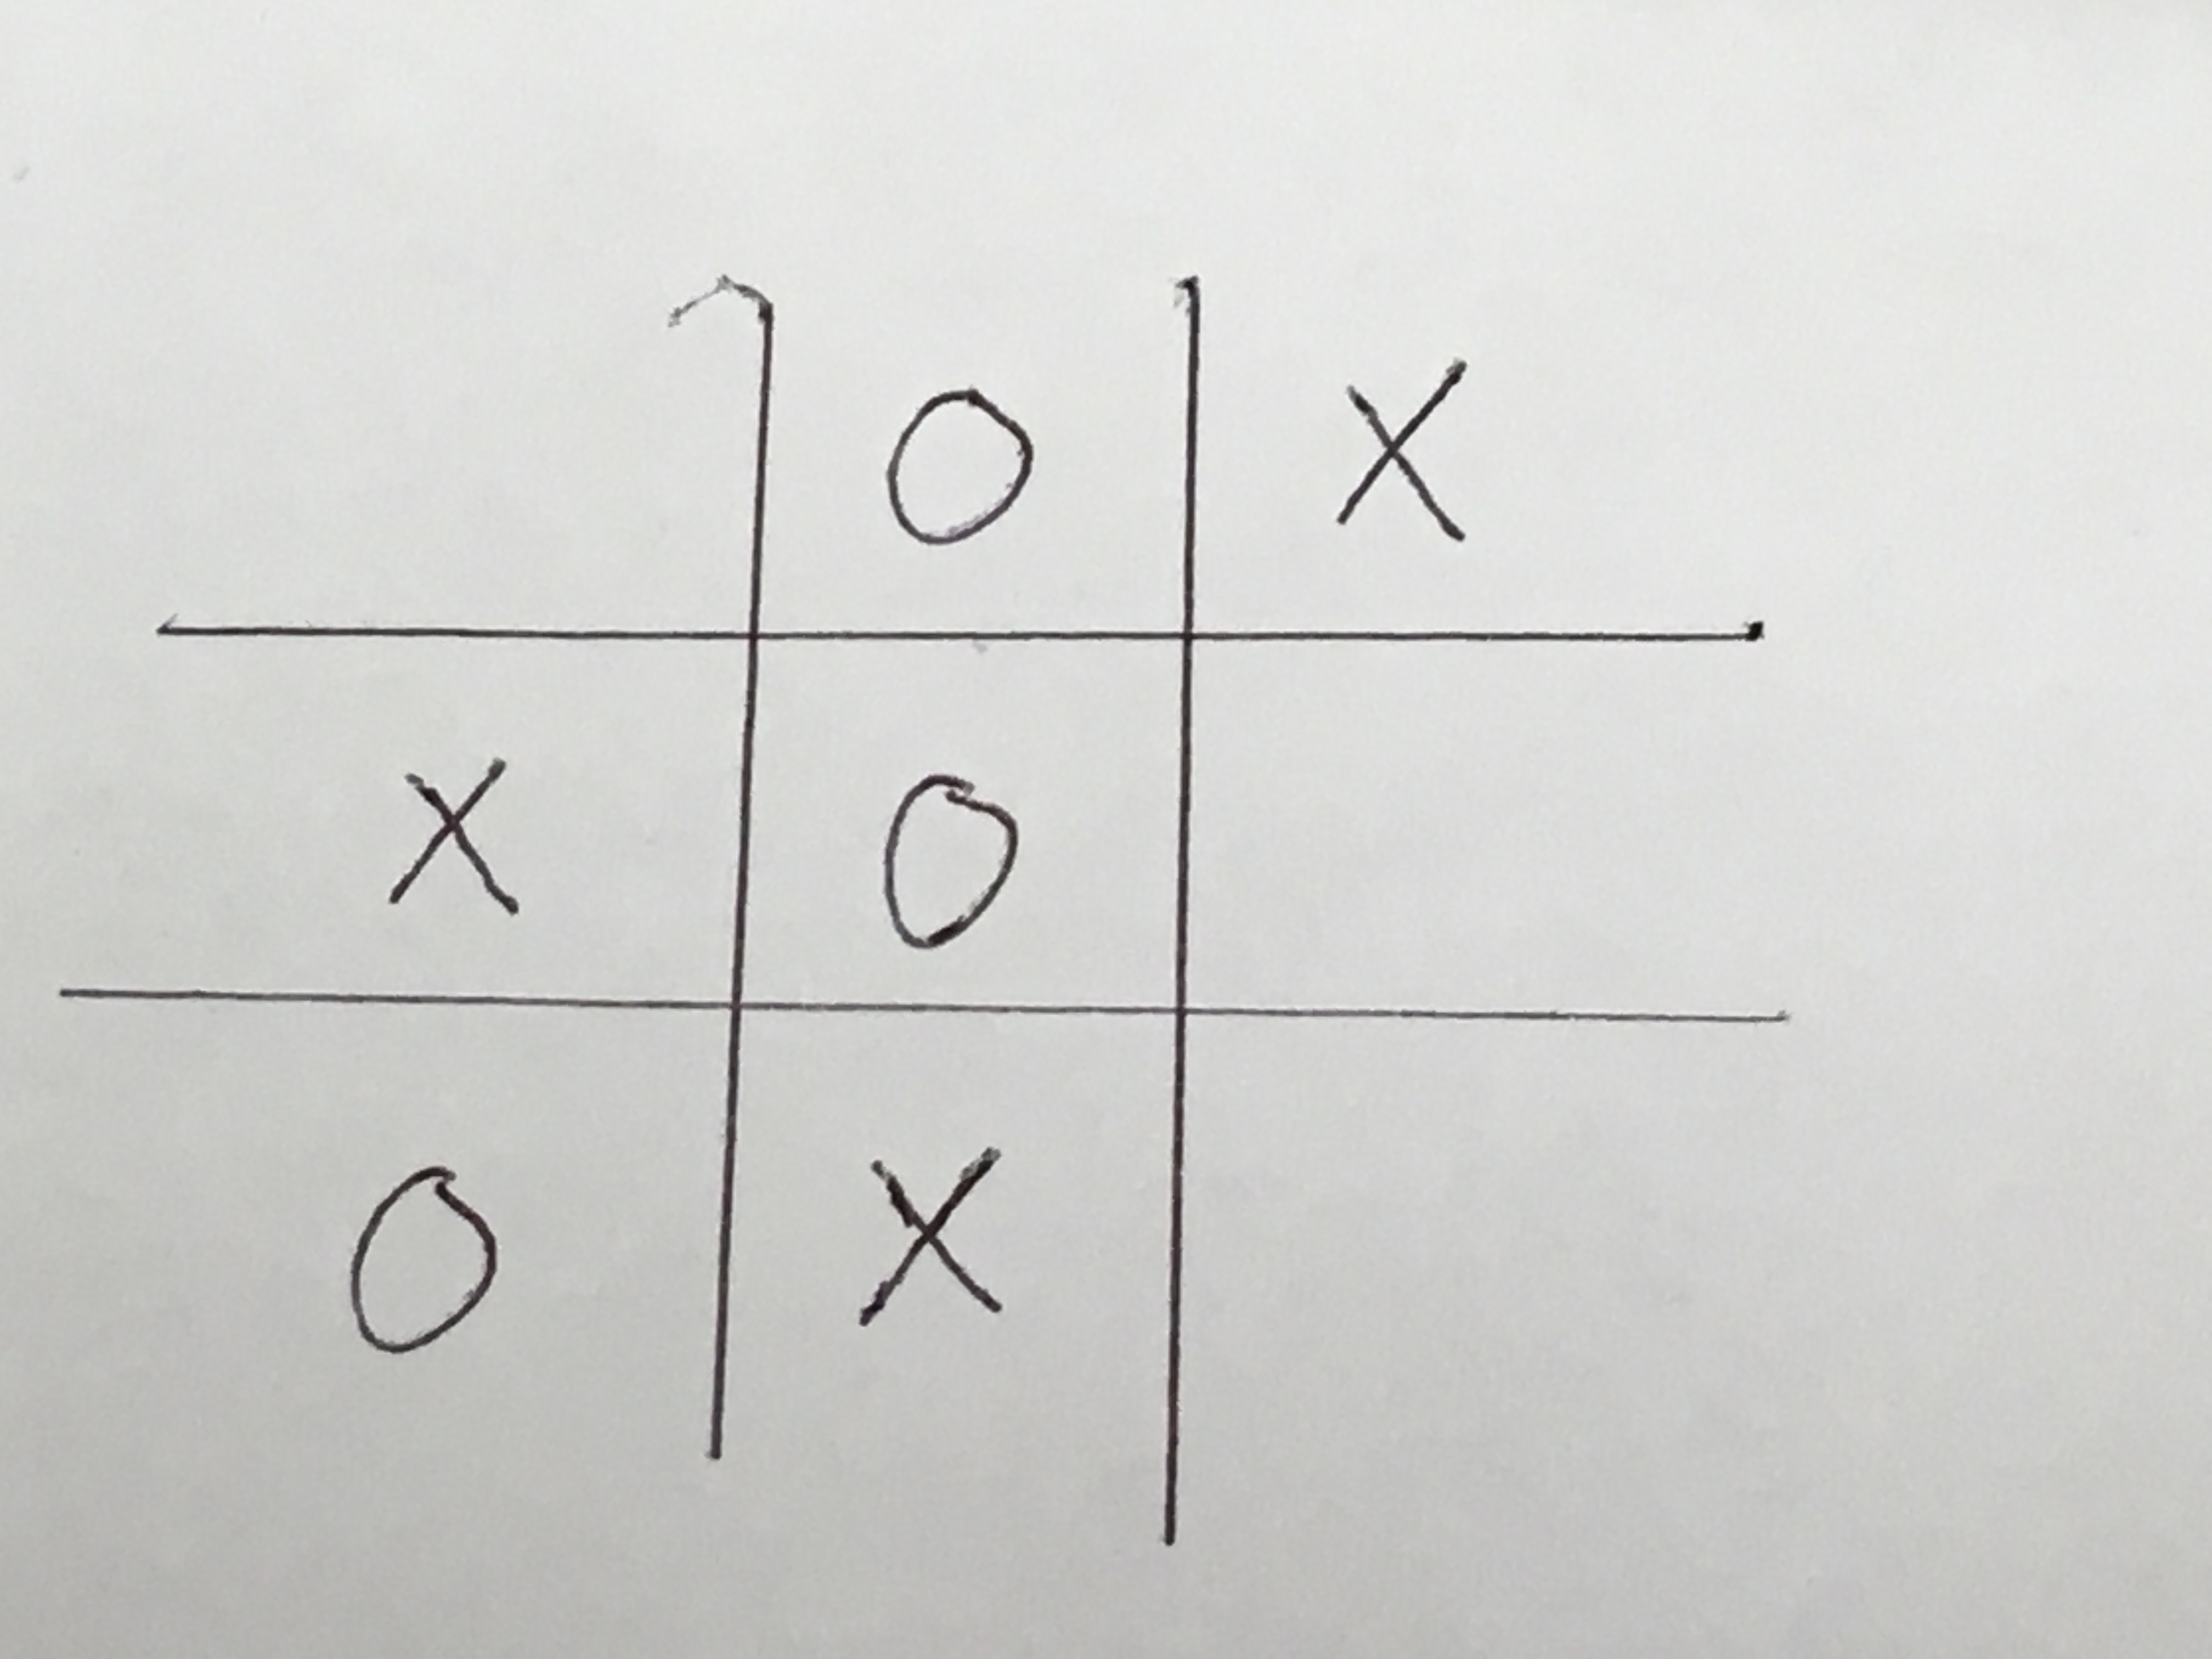 O X
X O
O X